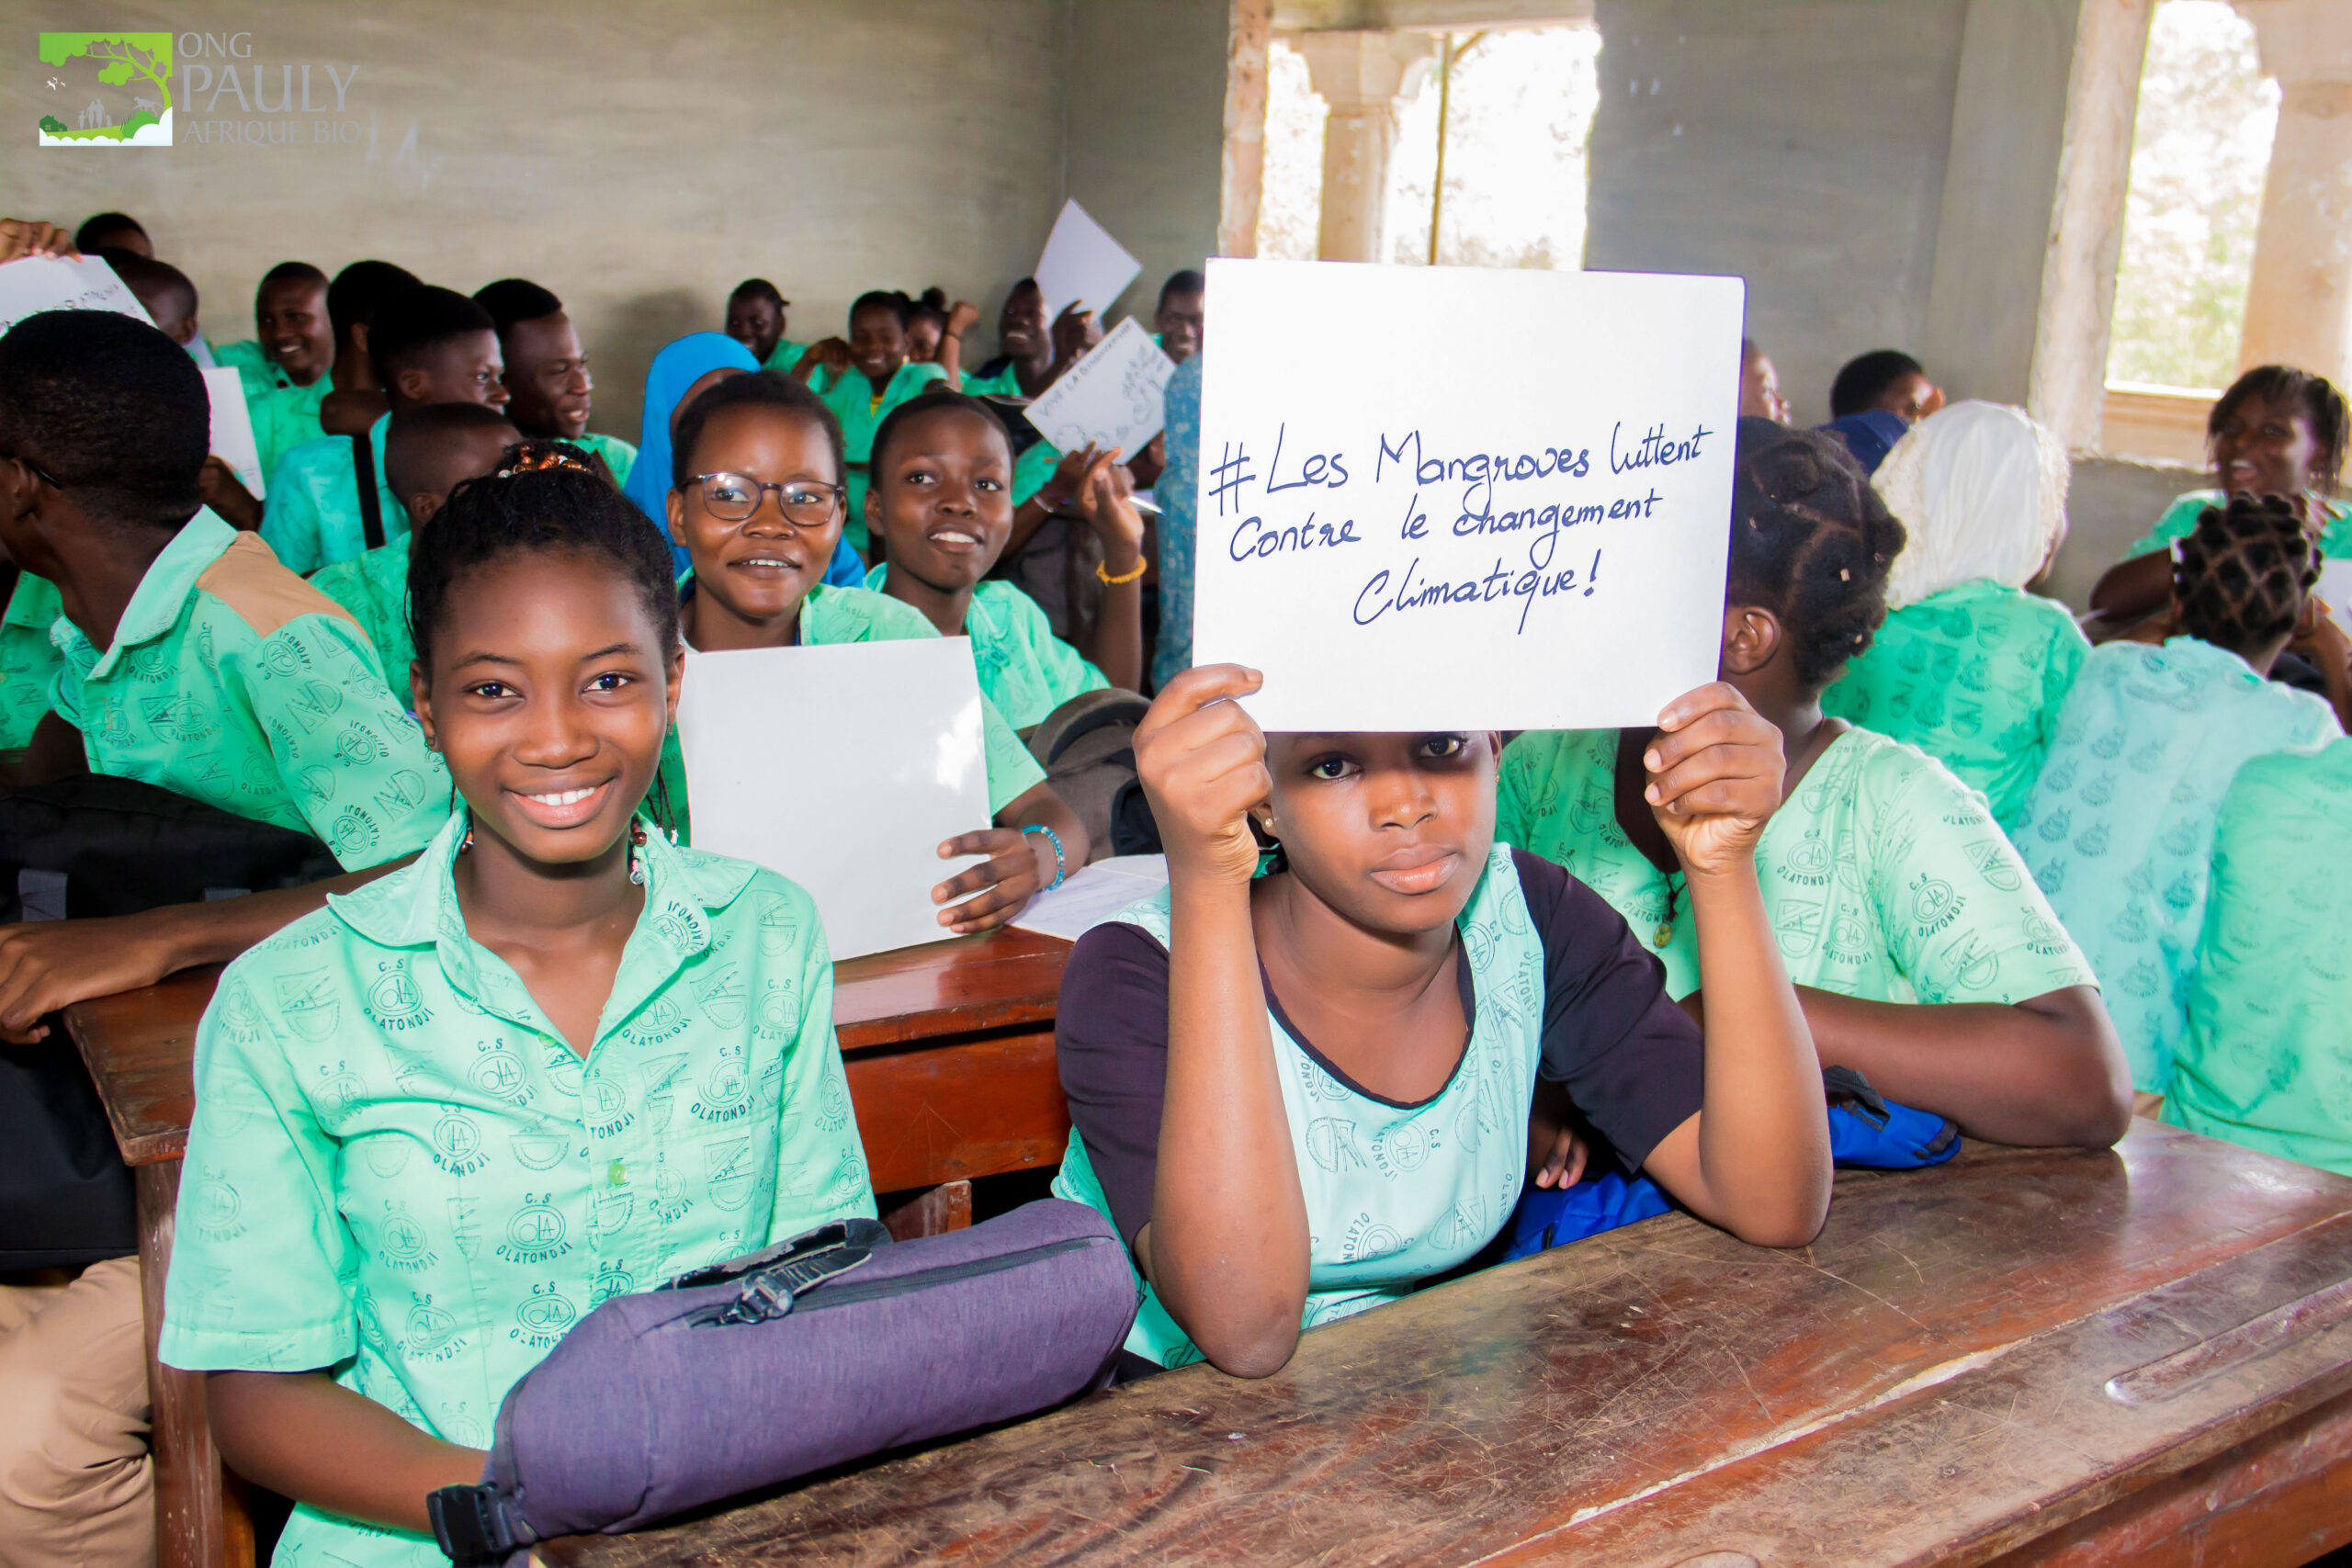 ONG
PAULY
AFRIQUE BIO
VIVE LA
#Les Mangroves luttent
Contre le changement
Climatique!
C.S
OLATONDJI